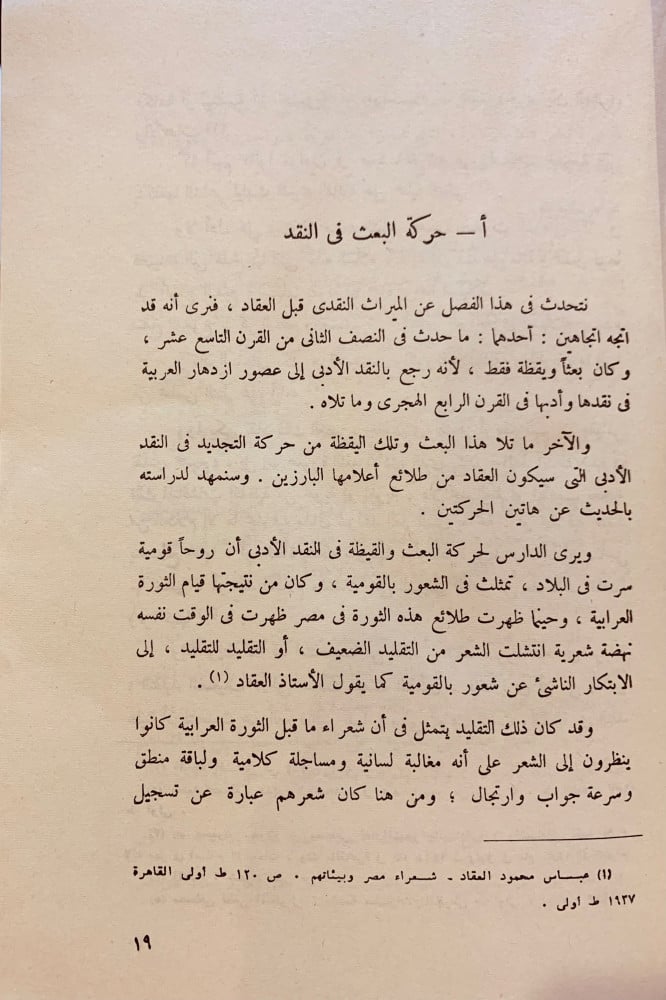 أ — حركة البعث فى النقد
نتحدث فى هذا الفصل عن الميراث النقدى قبل العقاد ، فنرى أنه قد
اتجه اتجاهين : أحدهما : ما حدث فى النصف الثانى من القرن التاسع عشر ،
وكان بعثاً ويقظة فقط ، لأنه رجع بالنقد الأدبى إلى عصور ازدهار العربية
فى نقدها وأدبها فى القرن الرابع الهجرى وما تلاه .
والآخر ما تلا هذا البعث وتلك اليقظة من حركة التجديد فى النقد
الأدبى التى سيكون العقاد من طلائع أعلامها البارزين . وسنمهد لدراسته
بالحديث عن هاتين الحركتين .
ويرى الدارس لحركة البعث والقيظة فى النقد الأدبى أن روحاً قومية
سرت فى البلاد ، تمثلث فى الشعور بالقومية ، وكان من نتيجتها قيام الثورة
العرابية ، وحينما ظهرت طلائع هذه الثورة فى مصر ظهرت فى الوقت نفسه
نهضة شعرية انتشلت الشعر من التقليد الضعيف ، أو التقليد للتقليد ، إلى
الابتكار الناشئ عن شعور بالقومية كما يقول الأستاذ العقاد (١) .
وقد كان ذلك التقليد يتمثل فى أن شعراء ما قبل الثورة العرابية كانوا
ينظرون إلى الشعر على أنه مغالبة لسانية ومساجلة كلامية ولباقة منطق
وسرعة جواب وارتجال ؛ ومن هنا كان شعرهم عبارة عن تسجيل
(١) عباس محمود العقاد - شعراء مصر وبيئاتهم . ص ١٢٠ ط أولى القاهرة
١٩٣٧ ط أولى .
١٩